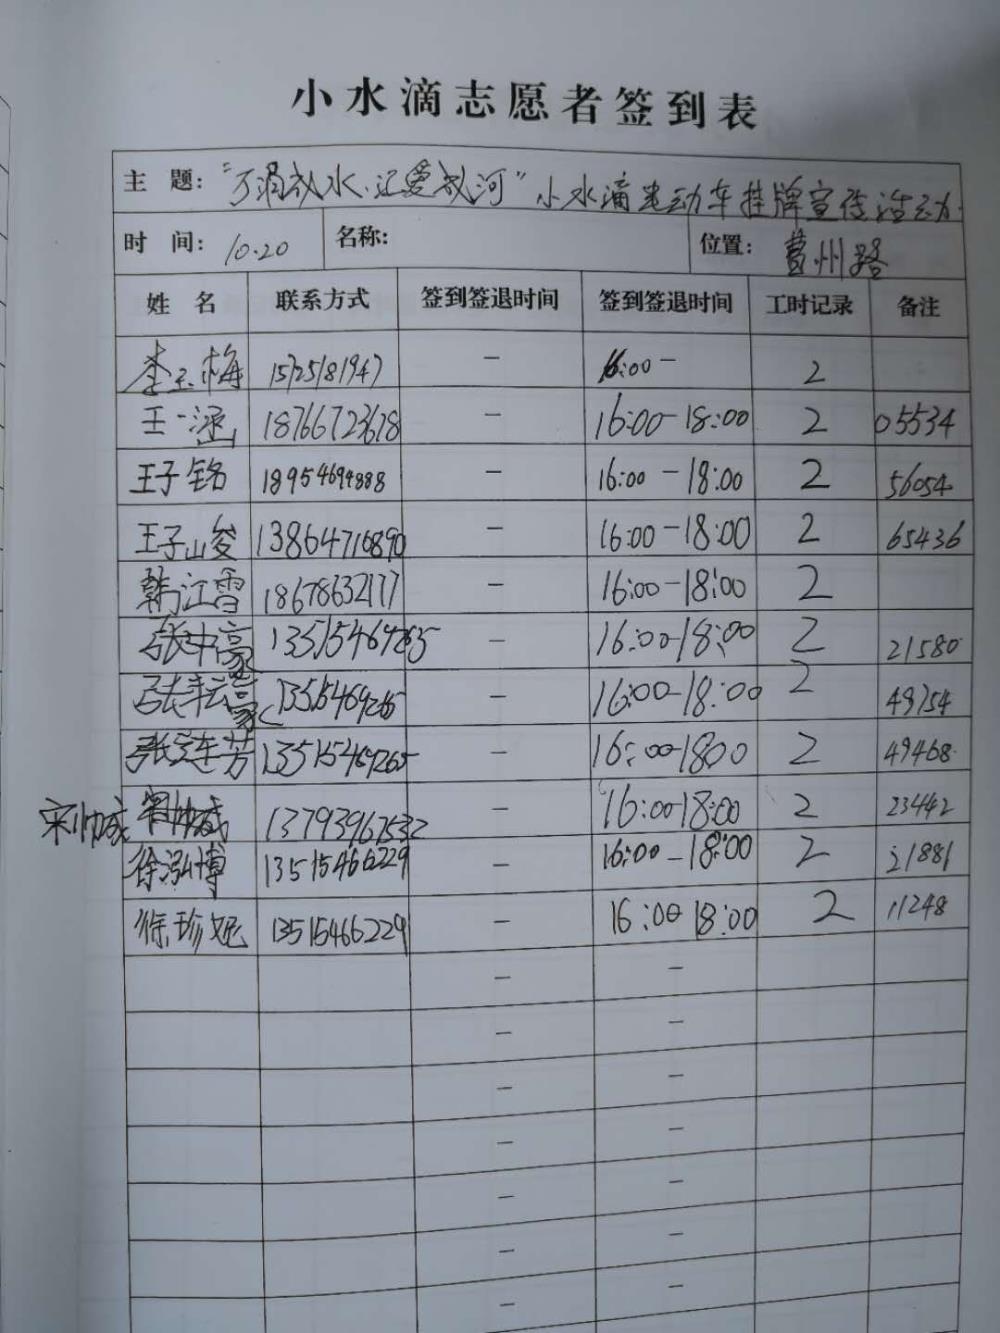 小水滴志愿者签到表
主 题: 小水滴电动车挂牌宣传活动
时 间: 10.20 名称: 位置: 曹州路
姓 名 联系方式 签到签退时间 签到签退时间 工时记录 备注
李玉梅 15725181947 — 16:00 — 2
王一涵 18766723678 — 16:00-18:00 2 05534
王子铭 18954694888 — 16:00-18:00 2 56054
王子 13864716890 — 16:00-18:00 2 65436
韩江雪 18678632177 — 16:00-18:00 2
张中豪 13515469265 — 16:00-18:00 2 21580
张 豪 13515469265 — 16:00-18:00 2 49754
张 芳 13515469265 — 16:00-1800 2 49468
宋帅成 13793967532 — 16:00-18:00 2 23442
徐泓博 13515466229 — 16:00-18:00 2 21881
徐珍妮 13515466229 — 16:00 18:00 2 11248